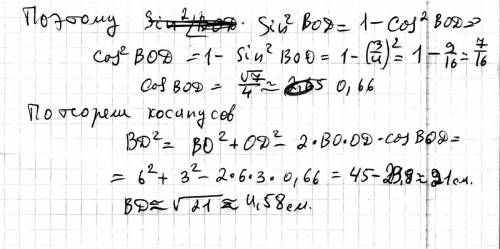 Поэтому sin² BOD = 1 - cos² BOD =>
cos² BOD = 1 - sin² BOD = 1 - (3/4)² = 1 - 9/16 = 7/16
cos BOD = √7/4 ≈ 0,66
По теорем косинусов
BD² = BO² + OD² - 2·BO·OD·cos BOD =
= 6² + 3² - 2·6·3·0,66 = 45 - 23,8 ≈ 21 см.
BD ≈ √21 ≈ 4,58 см.